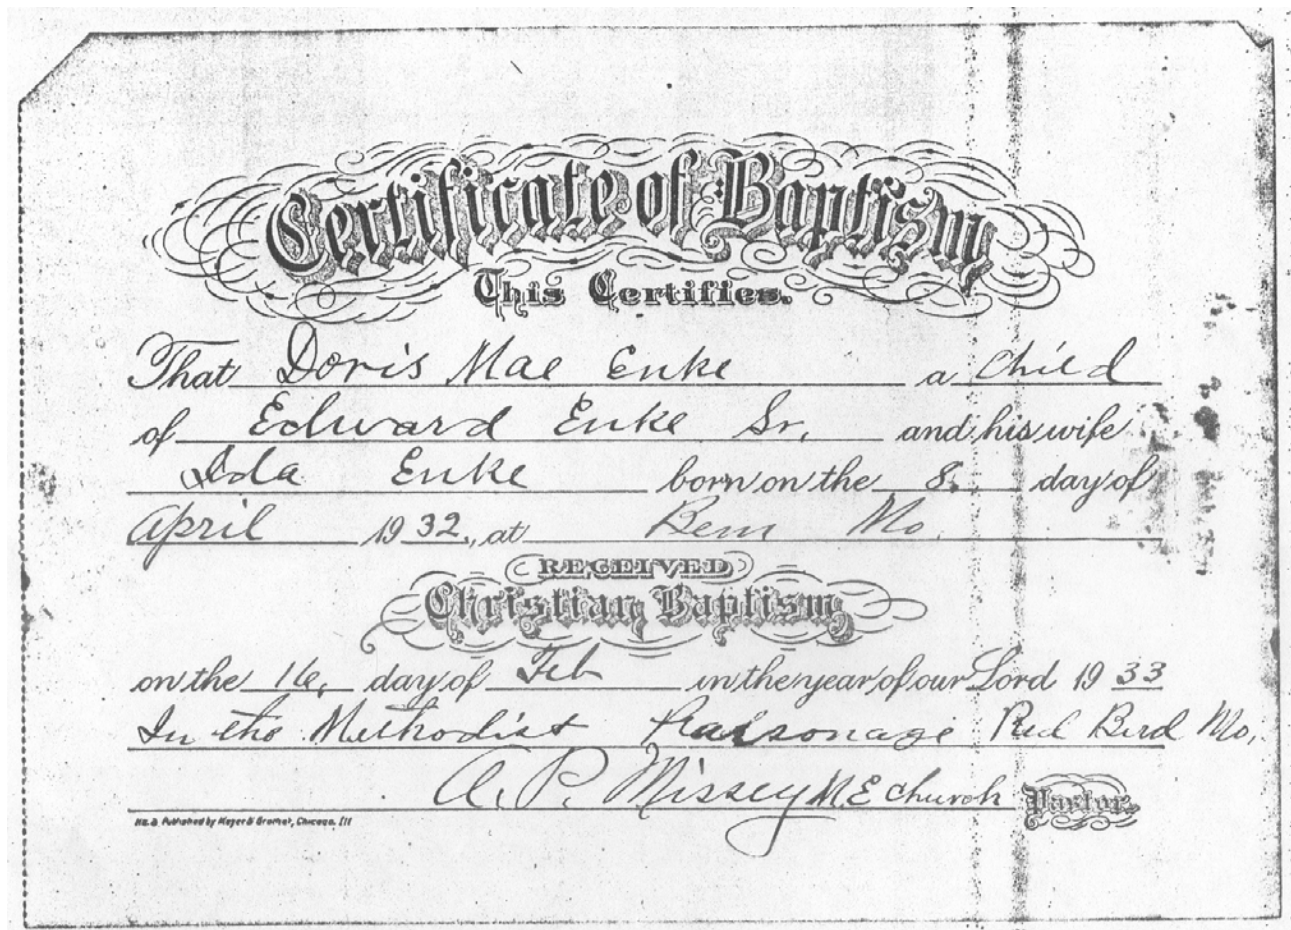 Certificate of Baptism
This Certifies.
That Doris Mae Enke a Child
of Edward Enke Sr. and his wife
Ida Enke born on the 8. day of
April 1932, at Bem Mo.
RECEIVED
Christian Baptism
on the 16, day of Feb in the year of our Lord 1933
In the Methodist Parsonage Red Bird Mo,
A. P. Missey M E Church Pastor.
Published by Meyer & Brother, Chicago. Ill